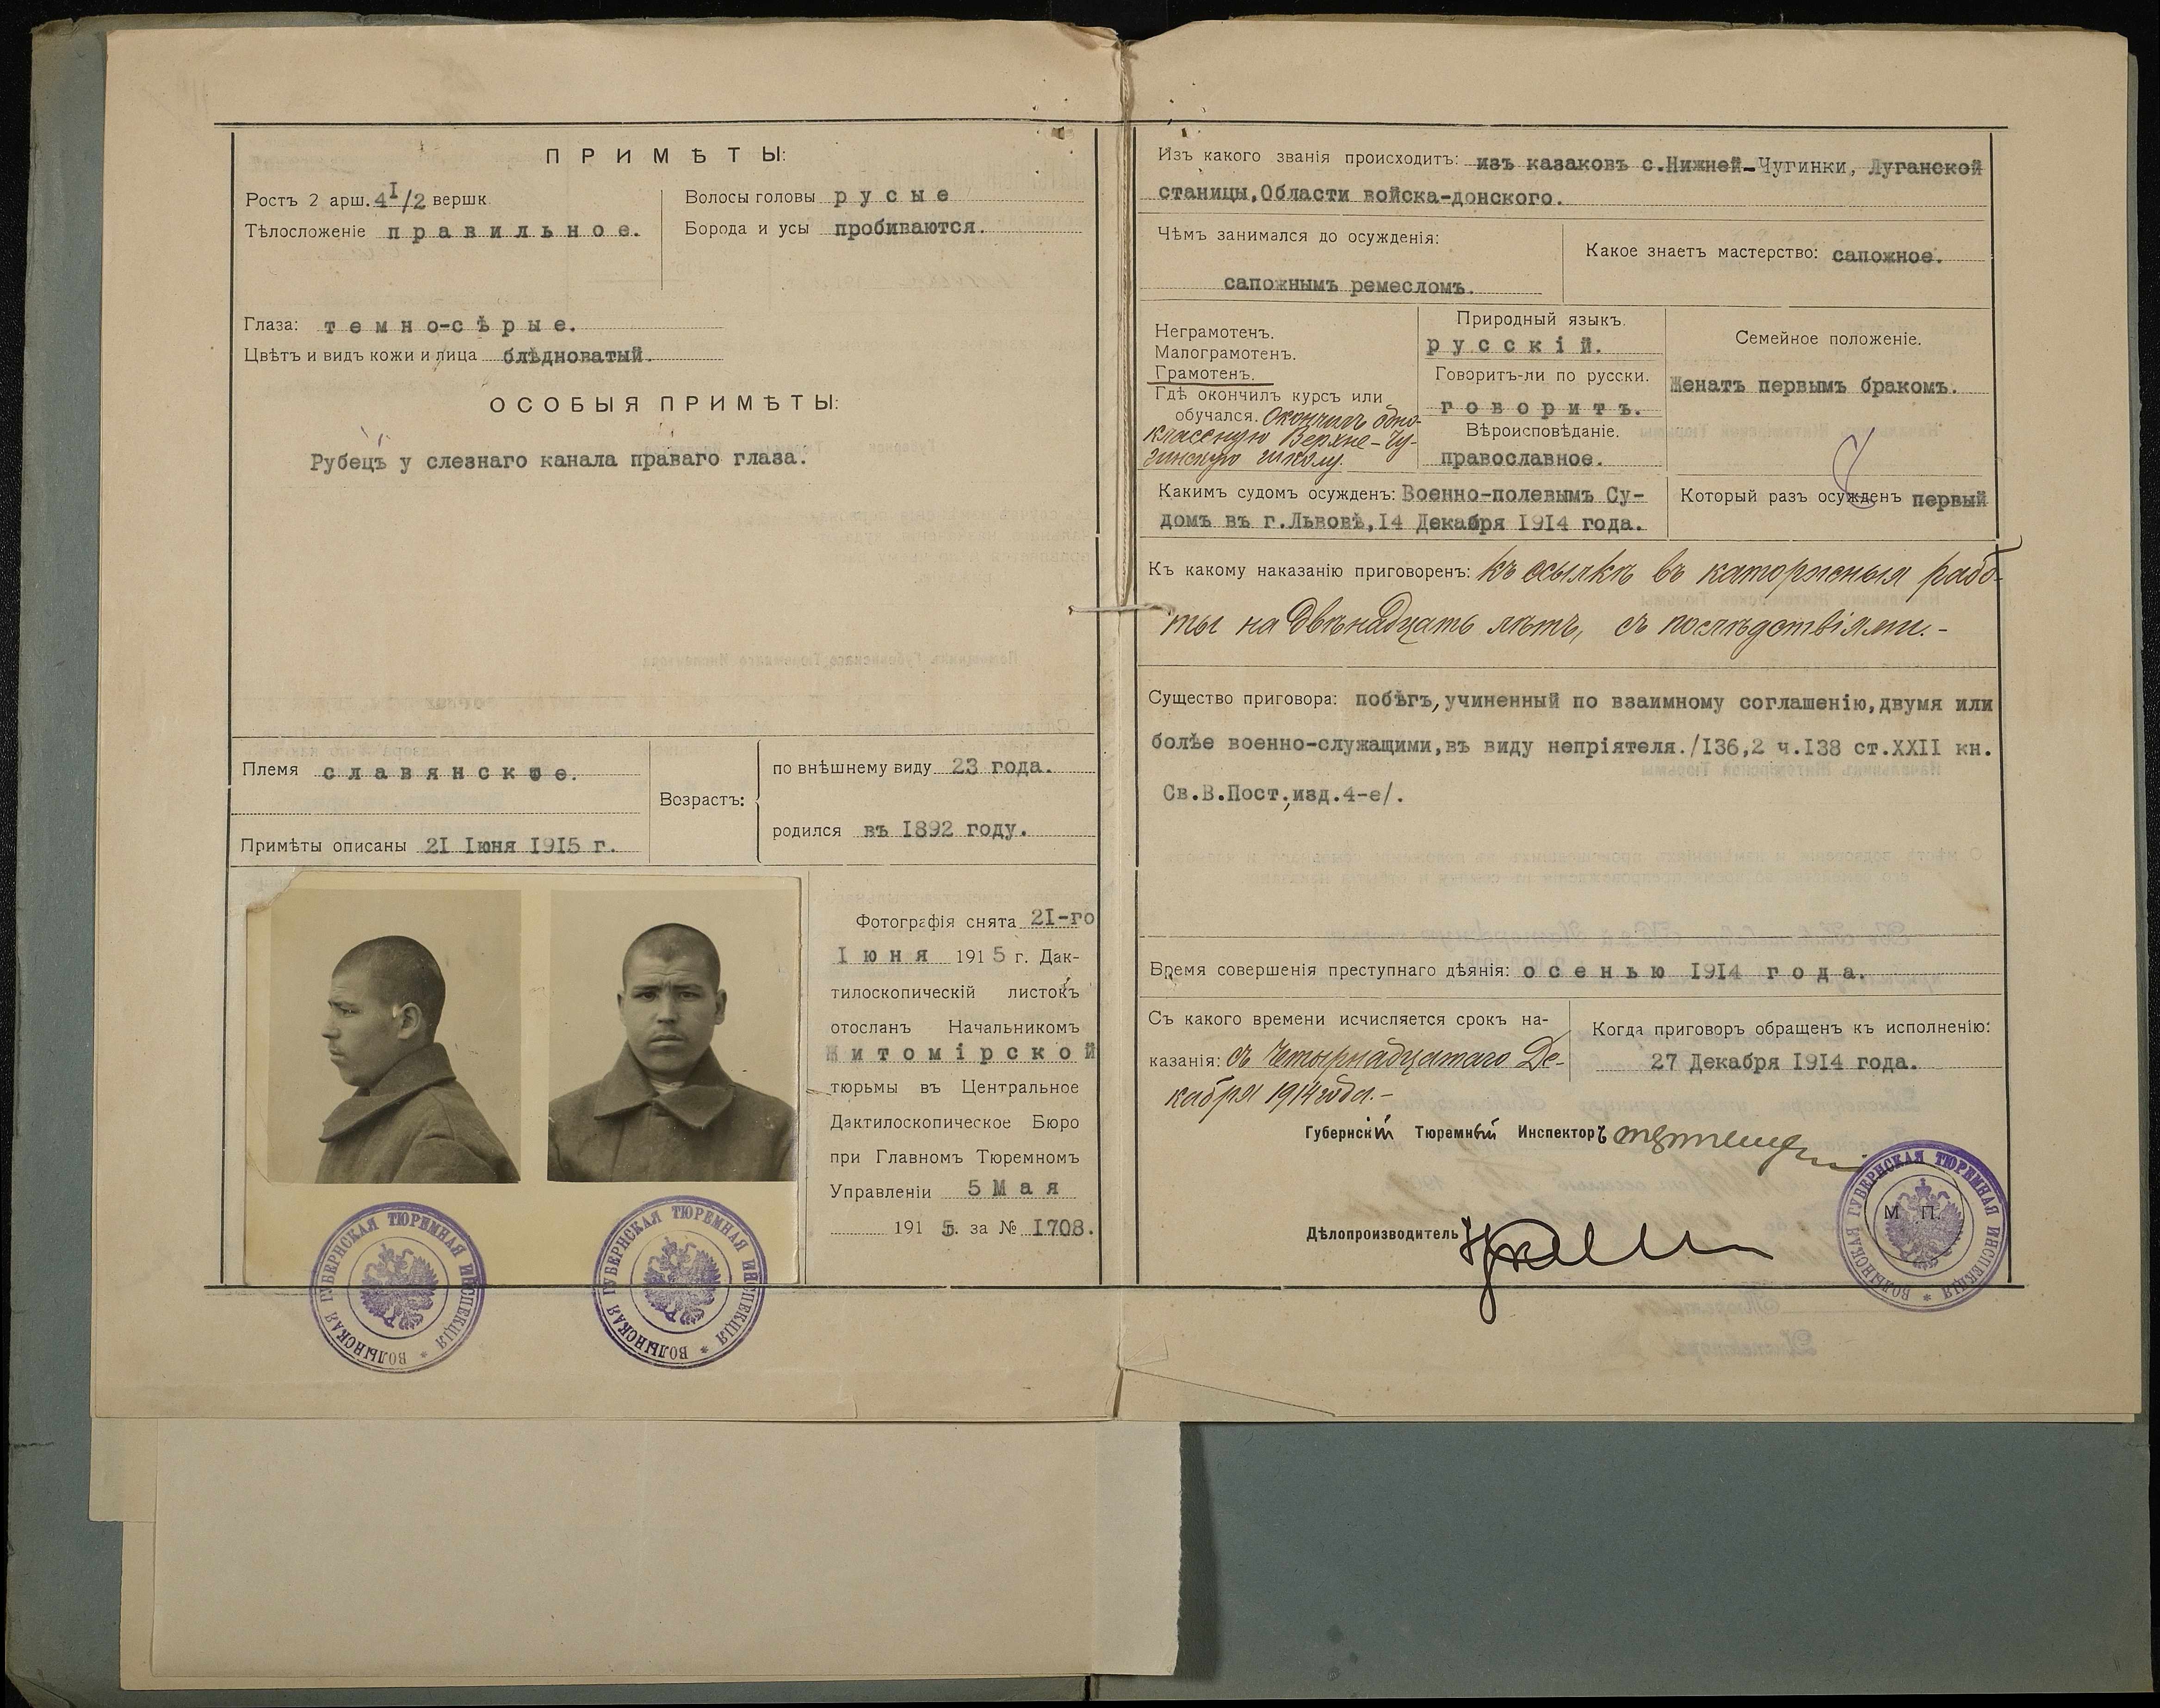 ПРИМѢТЫ:
Ростъ 2 арш. 4 I/2 вершк.
Тѣлосложеніе правильное.
Волосы головы русые
Борода и усы пробиваются.
Глаза: темно-сѣрые.
Цвѣтъ и видъ кожи и лица блѣдноватый.
ОСОБЫЯ ПРИМѢТЫ:
Рубецъ у слезнаго канала праваго глаза.
Племя славянское.
Примѣты описаны 2I Iюня I9I5 г.
Возрастъ:
по внѣшнему виду 23 года.
родился въ I892 году.
Фотографія снята 2I-го
Iюня 1915 г. Дак-
тилоскопическій листокъ
отосланъ Начальникомъ
Житомірской
тюрьмы въ Центральное
Дактилоскопическое Бюро
при Главномъ Тюремномъ
Управленіи 5 Мая
1915. за № I708.
ВОЛЫНСКАЯ ГУБЕРНСКАЯ ТЮРЕМНАЯ ИНСПЕКЦІЯ *
ВОЛЫНСКАЯ ГУБЕРНСКАЯ ТЮРЕМНАЯ ИНСПЕКЦІЯ *
Изъ какого званія происходитъ: изъ казаковъ с.Нижней-Чугинки, Луганской
станицы,Области войска-донского.
Чѣмъ занимался до осужденія:
сапожнымъ ремесломъ.
Какое знаетъ мастерство: сапожное.
Неграмотенъ.
Малограмотенъ.
Грамотенъ.
Гдѣ окончилъ курсъ или
обучался. Окончилъ одно-
классную Верхне-Чу-
гинскую школу.
Природный языкъ.
русскій.
Говоритъ-ли по русски.
говоритъ.
Вѣроисповѣданіе.
православное.
Семейное положеніе.
Женатъ первымъ бракомъ.
Какимъ судомъ осужденъ: Военно-полевымъ Су-
домъ въ г.Львовѣ,I4 Декабря I9I4 года.
Который разъ осужденъ первый
Къ какому наказанію приговоренъ: къ ссылкѣ въ каторжныя рабо-
ты на двѣнадцать лѣтъ, съ послѣдствіями.-
Существо приговора: побѣгъ,учиненный по взаимному соглашенію,двумя или
болѣе военно-служащими,въ виду непріятеля./I36,2 ч.I38 ст.XXII кн.
Св.В.Пост.,изд.4-е/.
Время совершенія преступнаго дѣянія: осенью I9I4 года.
Съ какого времени исчисляется срокъ на-
казанія: съ четырнадцатаго Де-
кабря 1914 года.-
Когда приговоръ обращенъ къ исполненію:
27 Декабря I9I4 года.
Губернскій Тюремный Инспекторъ
Дѣлопроизводитель
М. П.
ВОЛЫНСКАЯ ГУБЕРНСКАЯ ТЮРЕМНАЯ ИНСПЕКЦІЯ *